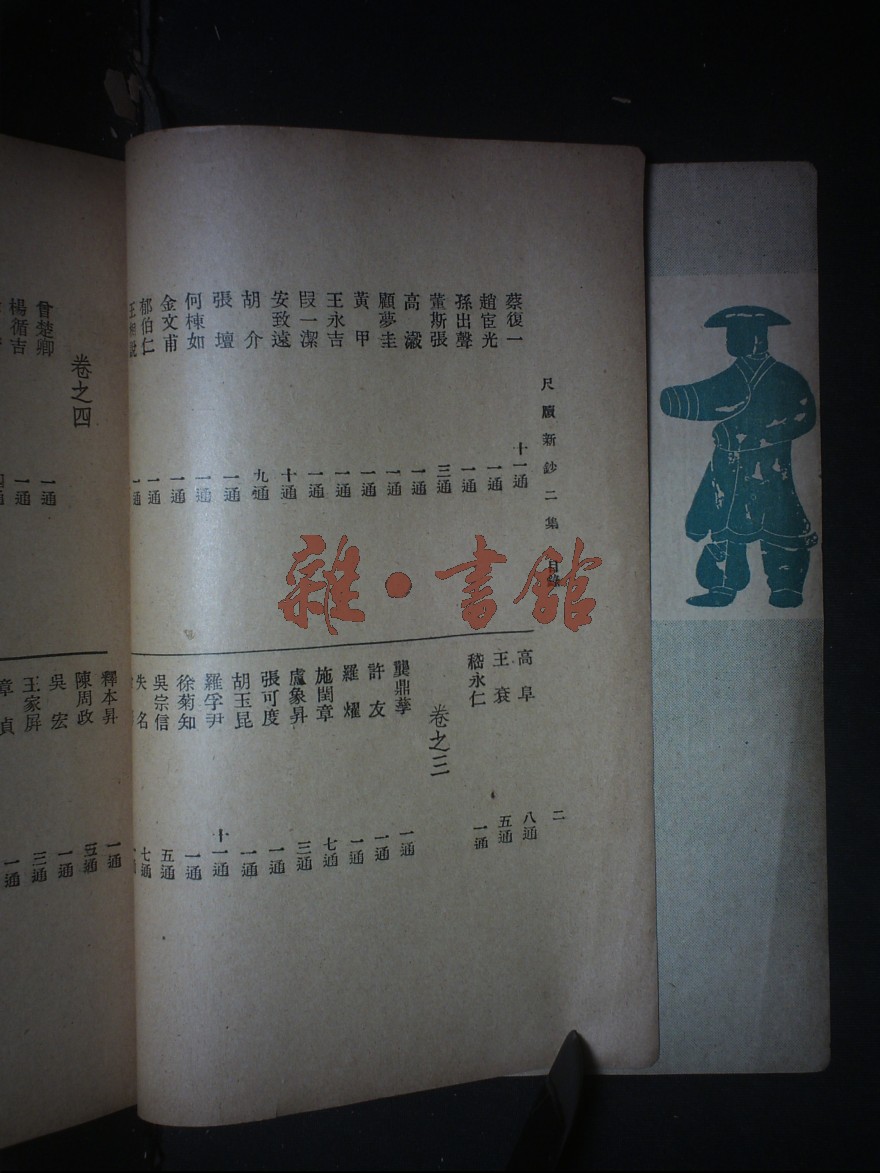 尺牘新鈔二集 目錄
二
蔡復一 十一通
趙宧光 一通
孫出聲 一通
董斯張 三通
高瀫 一通
顧夢圭 一通
黃甲 一通
王永吉 一通
段一潔 一通
安致遠 十通
胡介 九通
張壇 一通
何棟如 一通
金文甫 一通
郁伯仁 一通
一通
高阜 八通
王袞 五通
嵇永仁 一通
卷之三
龔鼎孳 一通
許友 一通
羅燿 一通
施閏章 七通
盧象昇 三通
張可度 一通
胡玉昆 一通
羅孚尹 十一通
徐菊知 一通
吳宗信 五通
失名 七通
卷之四
曾楚卿 一通
楊循吉 一通
釋本昇 一通
陳周政 五通
吳宏 一通
王家屏 三通
章貞 一通
雜·書館